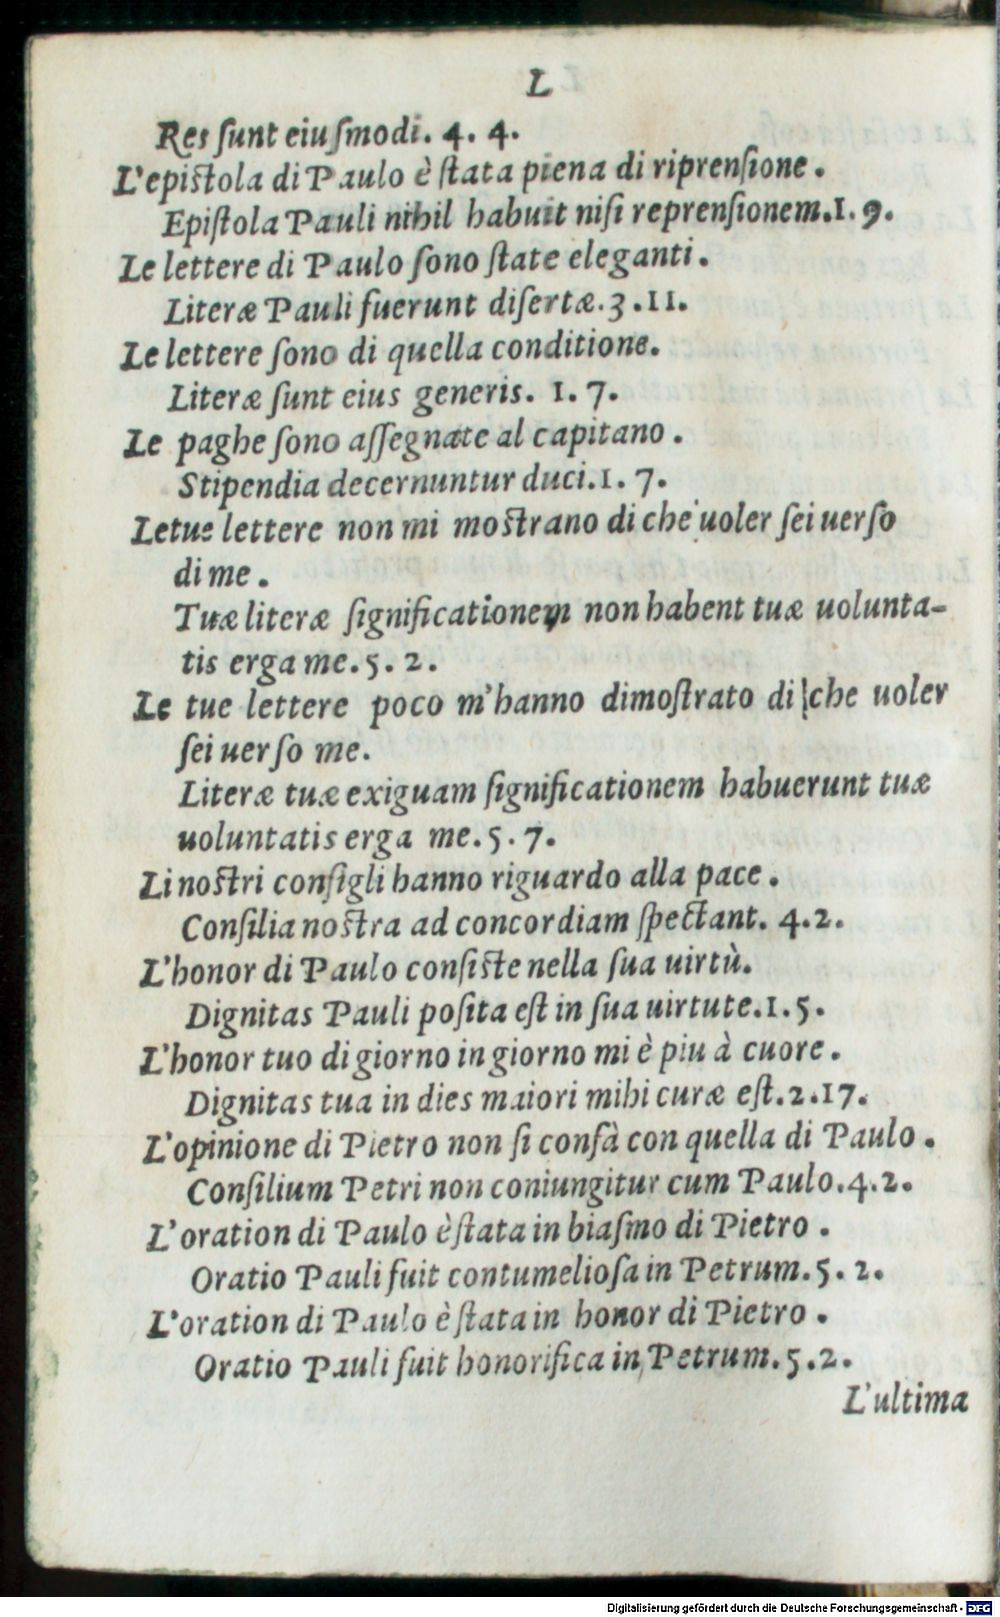 L
Res ſunt eiuſmodi. 4. 4.
L'epiſtola di Paulo è ſtata piena di riprenſione.
Epiſtola Pauli nihil habuit niſi reprenſionem.1. 9.
Le lettere di Paulo ſono ſtate eleganti.
Literæ Pauli fuerunt diſertæ. 3. 11.
Le lettere ſono di quella conditione.
Literæ ſunt eius generis. 1. 7.
Le paghe ſono aſſegnate al capitano.
Stipendia decernuntur duci.1. 7.
Le tue lettere non mi moſtrano di che uoler ſei uerſo
di me.
Tuæ literæ ſignificationem non habent tuæ uolunta-
tis erga me. 5. 2.
Le tue lettere poco m'hanno dimoſtrato di che uoler
ſei uerſo me.
Literæ tuæ exiguam ſignificationem habuerunt tuæ
uoluntatis erga me. 5. 7.
Li noſtri conſigli hanno riguardo alla pace.
Conſilia noſtra ad concordiam ſpectant. 4.2.
L'honor di Paulo conſiſte nella ſua uirtù.
Dignitas Pauli poſita eſt in ſua uirtute.1. 5.
L'honor tuo di giorno in giorno mi è piu à cuore.
Dignitas tua in dies maiori mihi curæ eſt.2.17.
L'opinione di Pietro non ſi confà con quella di Paulo.
Conſilium Petri non coniungitur cum Paulo.4.2.
L'oration di Paulo è ſtata in biaſmo di Pietro.
Oratio Pauli fuit contumelioſa in Petrum. 5. 2.
L'oration di Paulo è ſtata in honor di Pietro.
Oratio Pauli fuit honorifica in Petrum. 5.2.
L'ultima
Digitalisierung gefördert durch die Deutsche Forschungsgemeinschaft - DFG